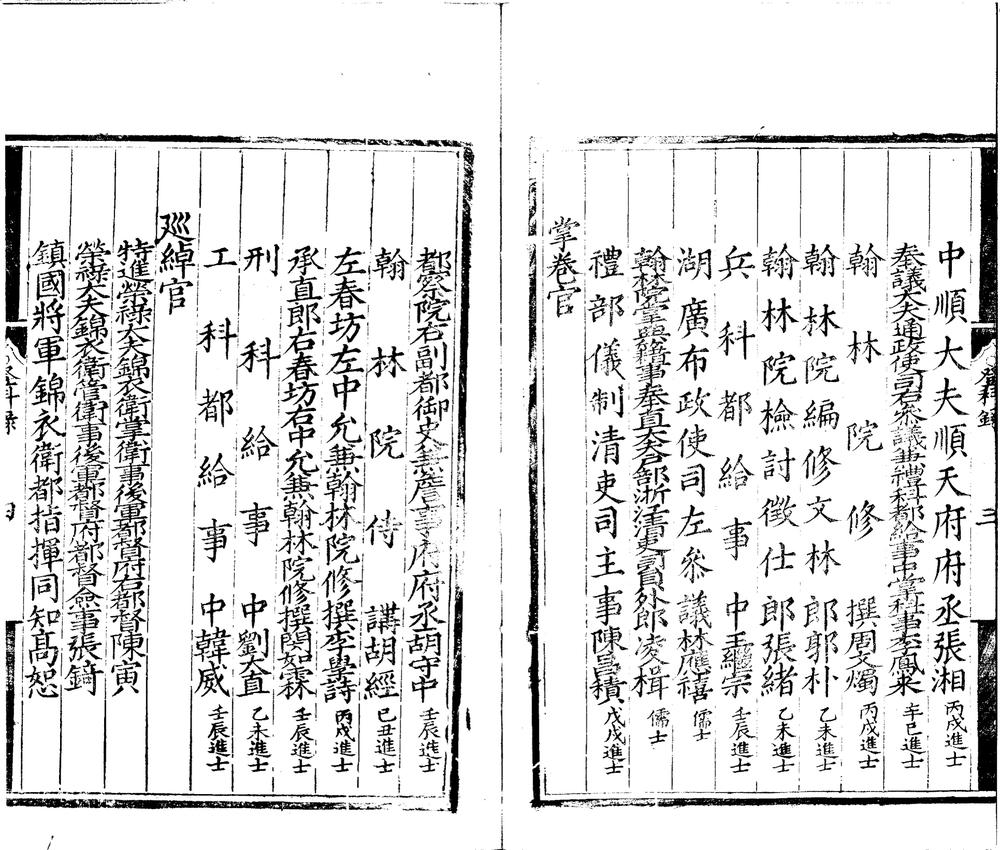 中順大夫順天府府丞張湘 丙戌進士
奉議大夫通政使司右叅議兼禮科都給事中掌科事李鳳來 辛巳進士
翰林院修撰周文燭 丙戌進士
翰林院編修文林郎郭朴 乙未進士
翰林院檢討徵仕郎張緒 乙未進士
兵科都給事中王繼宗 壬辰進士
湖廣布政使司左叅議林應禧 儒士
翰林院掌典籍事奉直大夫戶部浙江清吏司員外郎凌楫 儒士
禮部儀制清吏司主事陳爲積 戊戌進士
掌卷官
都察院右副都御史兼詹事府府丞胡守中 壬辰進士
翰林院侍講胡經 己丑進士
左春坊左中允兼翰林院修撰李學詩 丙戌進士
承直郎右春坊右中允兼翰林院修撰閔如霖 壬辰進士
刑科給事中劉大直 乙未進士
工科都給事中韓威 壬辰進士
巡綽官
特進榮祿大夫錦衣衛掌衛事後軍都督府右都督陳寅
榮祿大夫錦衣衛管衛事後軍都督府都督僉事張錡
鎮國將軍錦衣衛都指揮同知高恕